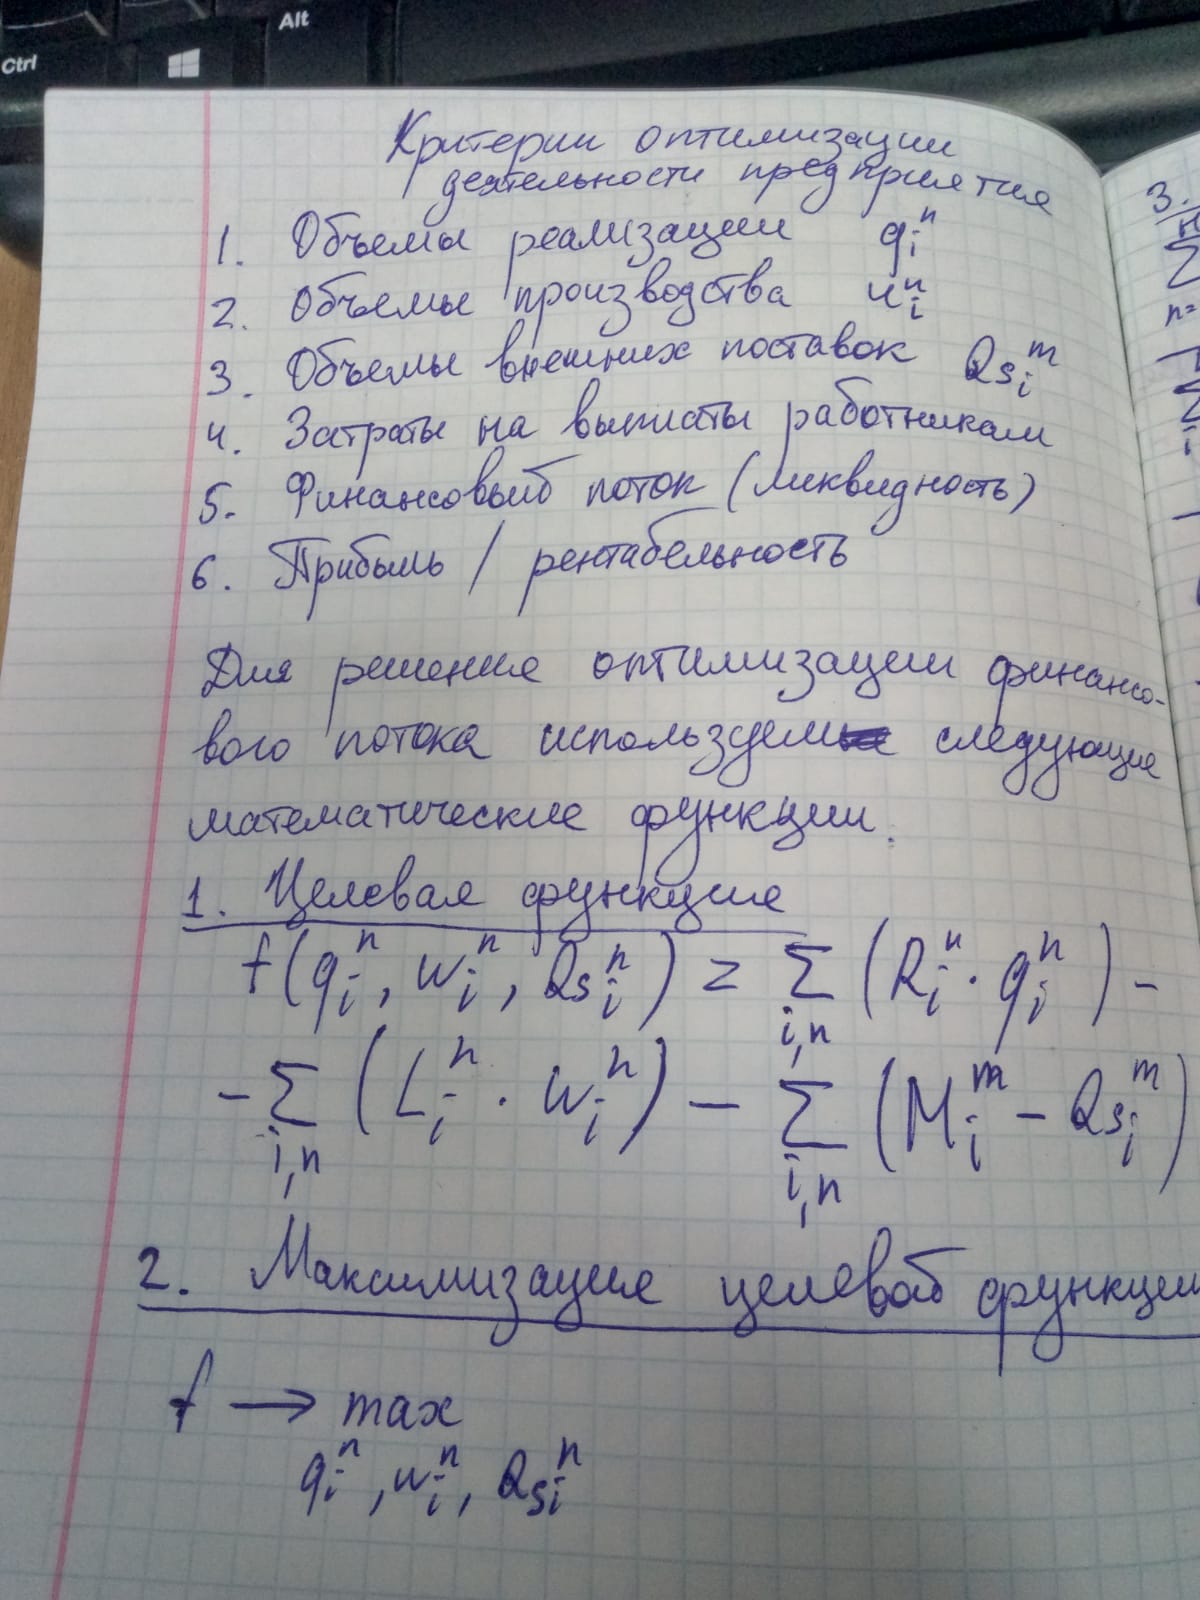 Alt
Ctrl
Критерии оптимизации
деятельности предприятия
1. Объемы реализации qᵢⁿ
2. Объемы производства wᵢⁿ
3. Объемы внешних поставок Qsᵢᵐ
4. Затраты на выплаты работникам
5. Финансовый поток (ликвидность)
6. Прибыль / рентабельность
Для решения оптимизации финансо-
вого потока используем следующие
математические функции.
1. Целевая функция
f(qᵢⁿ, wᵢⁿ, Qsᵢⁿ) = ∑ (Rᵢⁿ · qᵢⁿ) -
i,n
- ∑ (Lᵢⁿ · wᵢⁿ) - ∑ (Mᵢᵐ - Qsᵢᵐ)
i,n i,n
2. Максимизация целевой функции
f → max
qᵢⁿ, wᵢⁿ, Qsᵢⁿ
3.
∑
n=